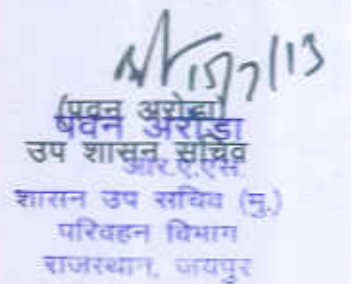 15/7/13
(पवन अरोड़ा)
पवन अरोड़ा
उप शासन सचिव
आर.ए.एस.
शासन उप सचिव (मु.)
परिवहन विभाग
राजस्थान, जयपुर